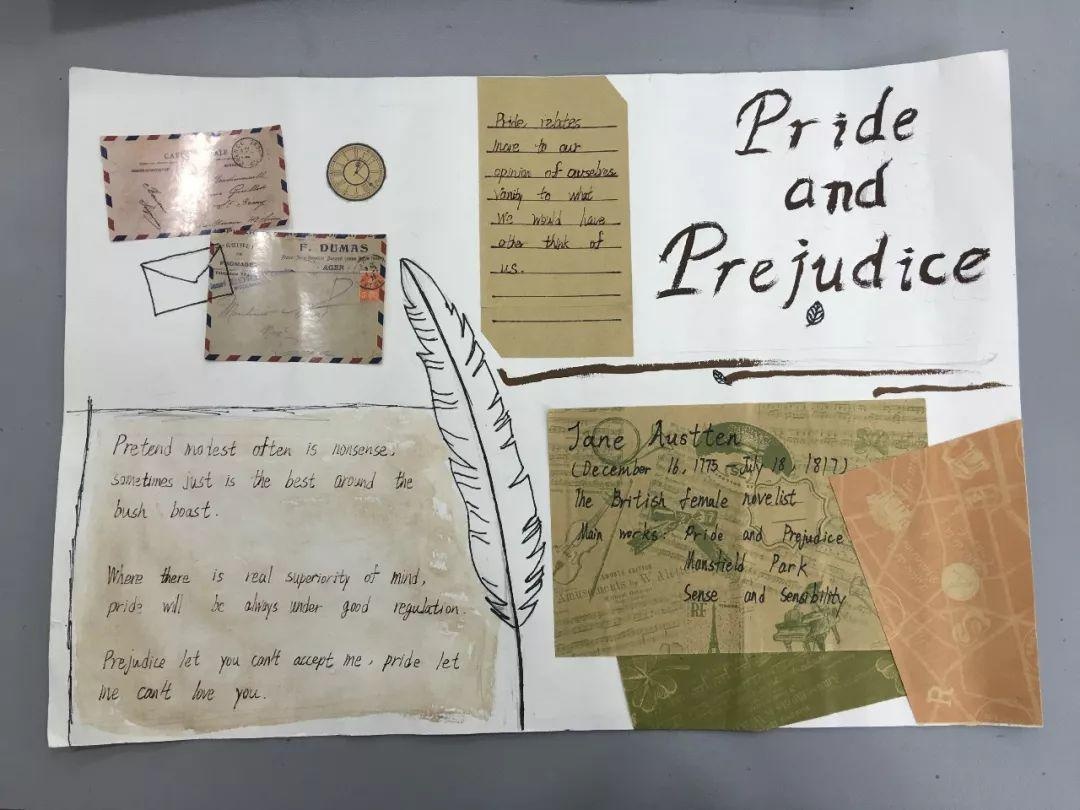 Pride
and
Prejudice
Pride relates
more to our
opinion of ourselves
vanity to what
we would have
other think of
us.
F. DUMAS
AGER
Pretend modest often is nonsense,
sometimes just is the best around the
bush boast.
Where there is real superiority of mind,
pride will be always under good regulation.
Prejudice let you can't accept me, pride let
me can't love you.
Jane Austten
(December 16, 1775 - July 18, 1817)
The British female novelist
Main works: Pride and Prejudice
Mansfield Park
Sense and Sensibility
RF